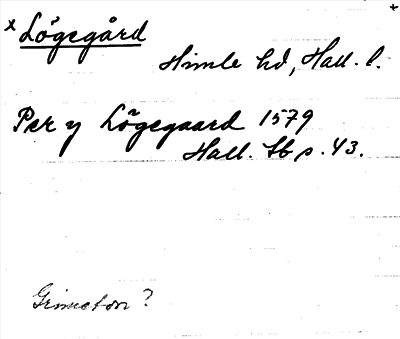 x Lögegård +
Himle hd, Hall. l.
Per y Lögegaard 1579
Hall. tb s. 43.
Grimeton?